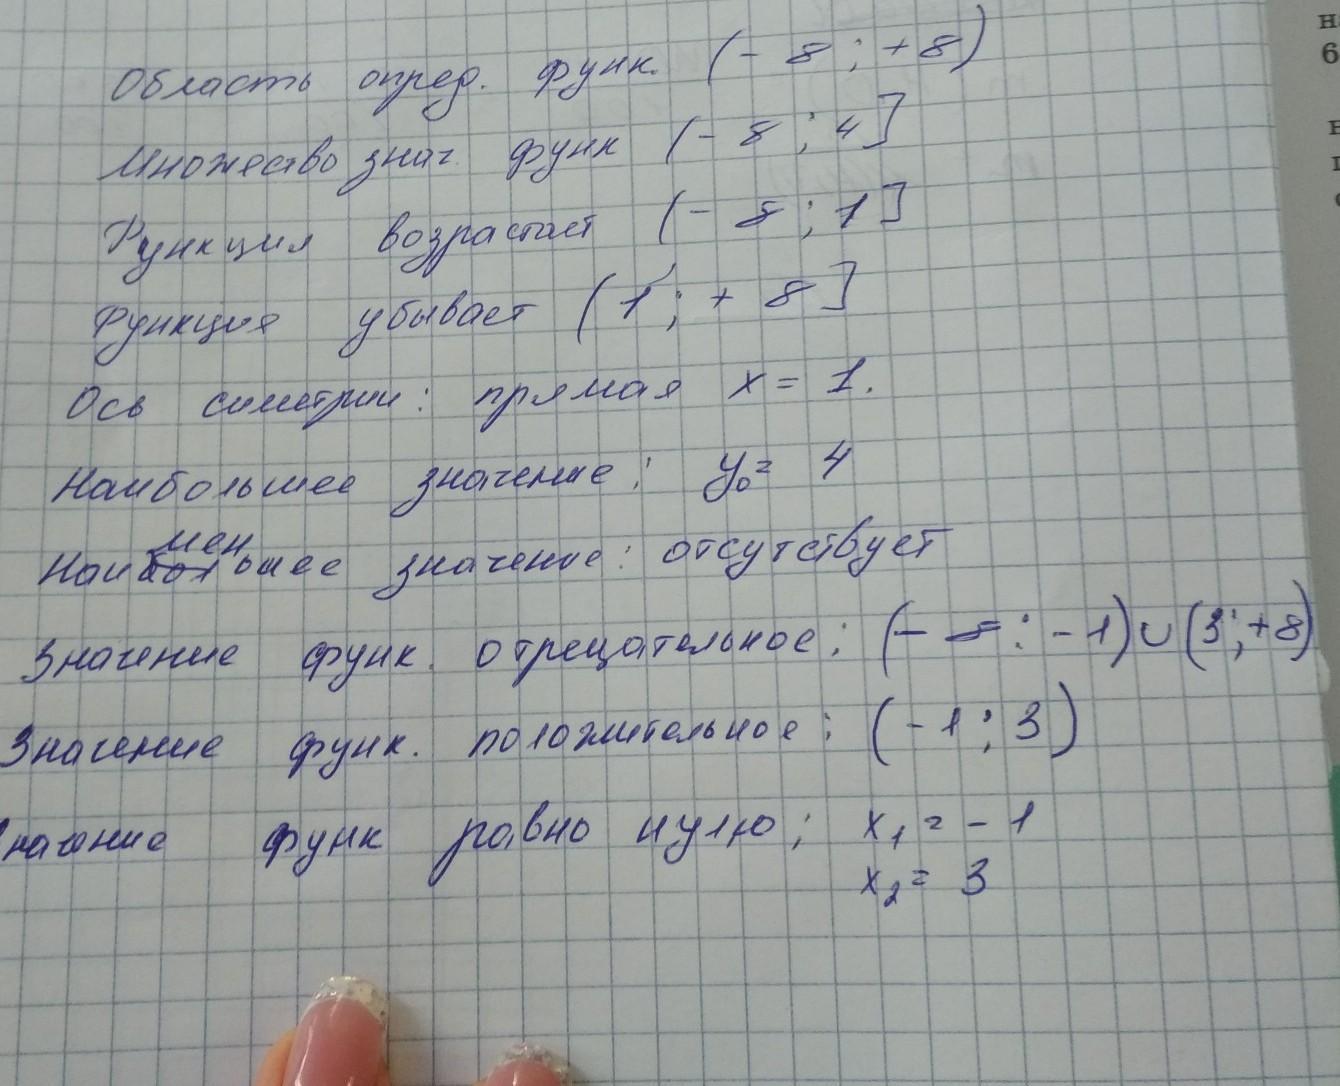 Область опред. функ. (- 8 ; + 8)
Множество знач. функ (- 8 ; 4]
Функция возрастает (- 8 ; 1]
Функция убывает (1 ; + 8]
Ось симетрии : прямая x = 1.
Наибольшее значение ; y₀= 4
мен
Наибольшее значение : отсутствует
Значение функ. отрецательное ; (- 8 : - 1) ∪ (3 ; +8)
Значение функ. положительное ; (- 1 ; 3)
начение функ равно нулю ; x₁ = - 1
x₂ = 3
н
6